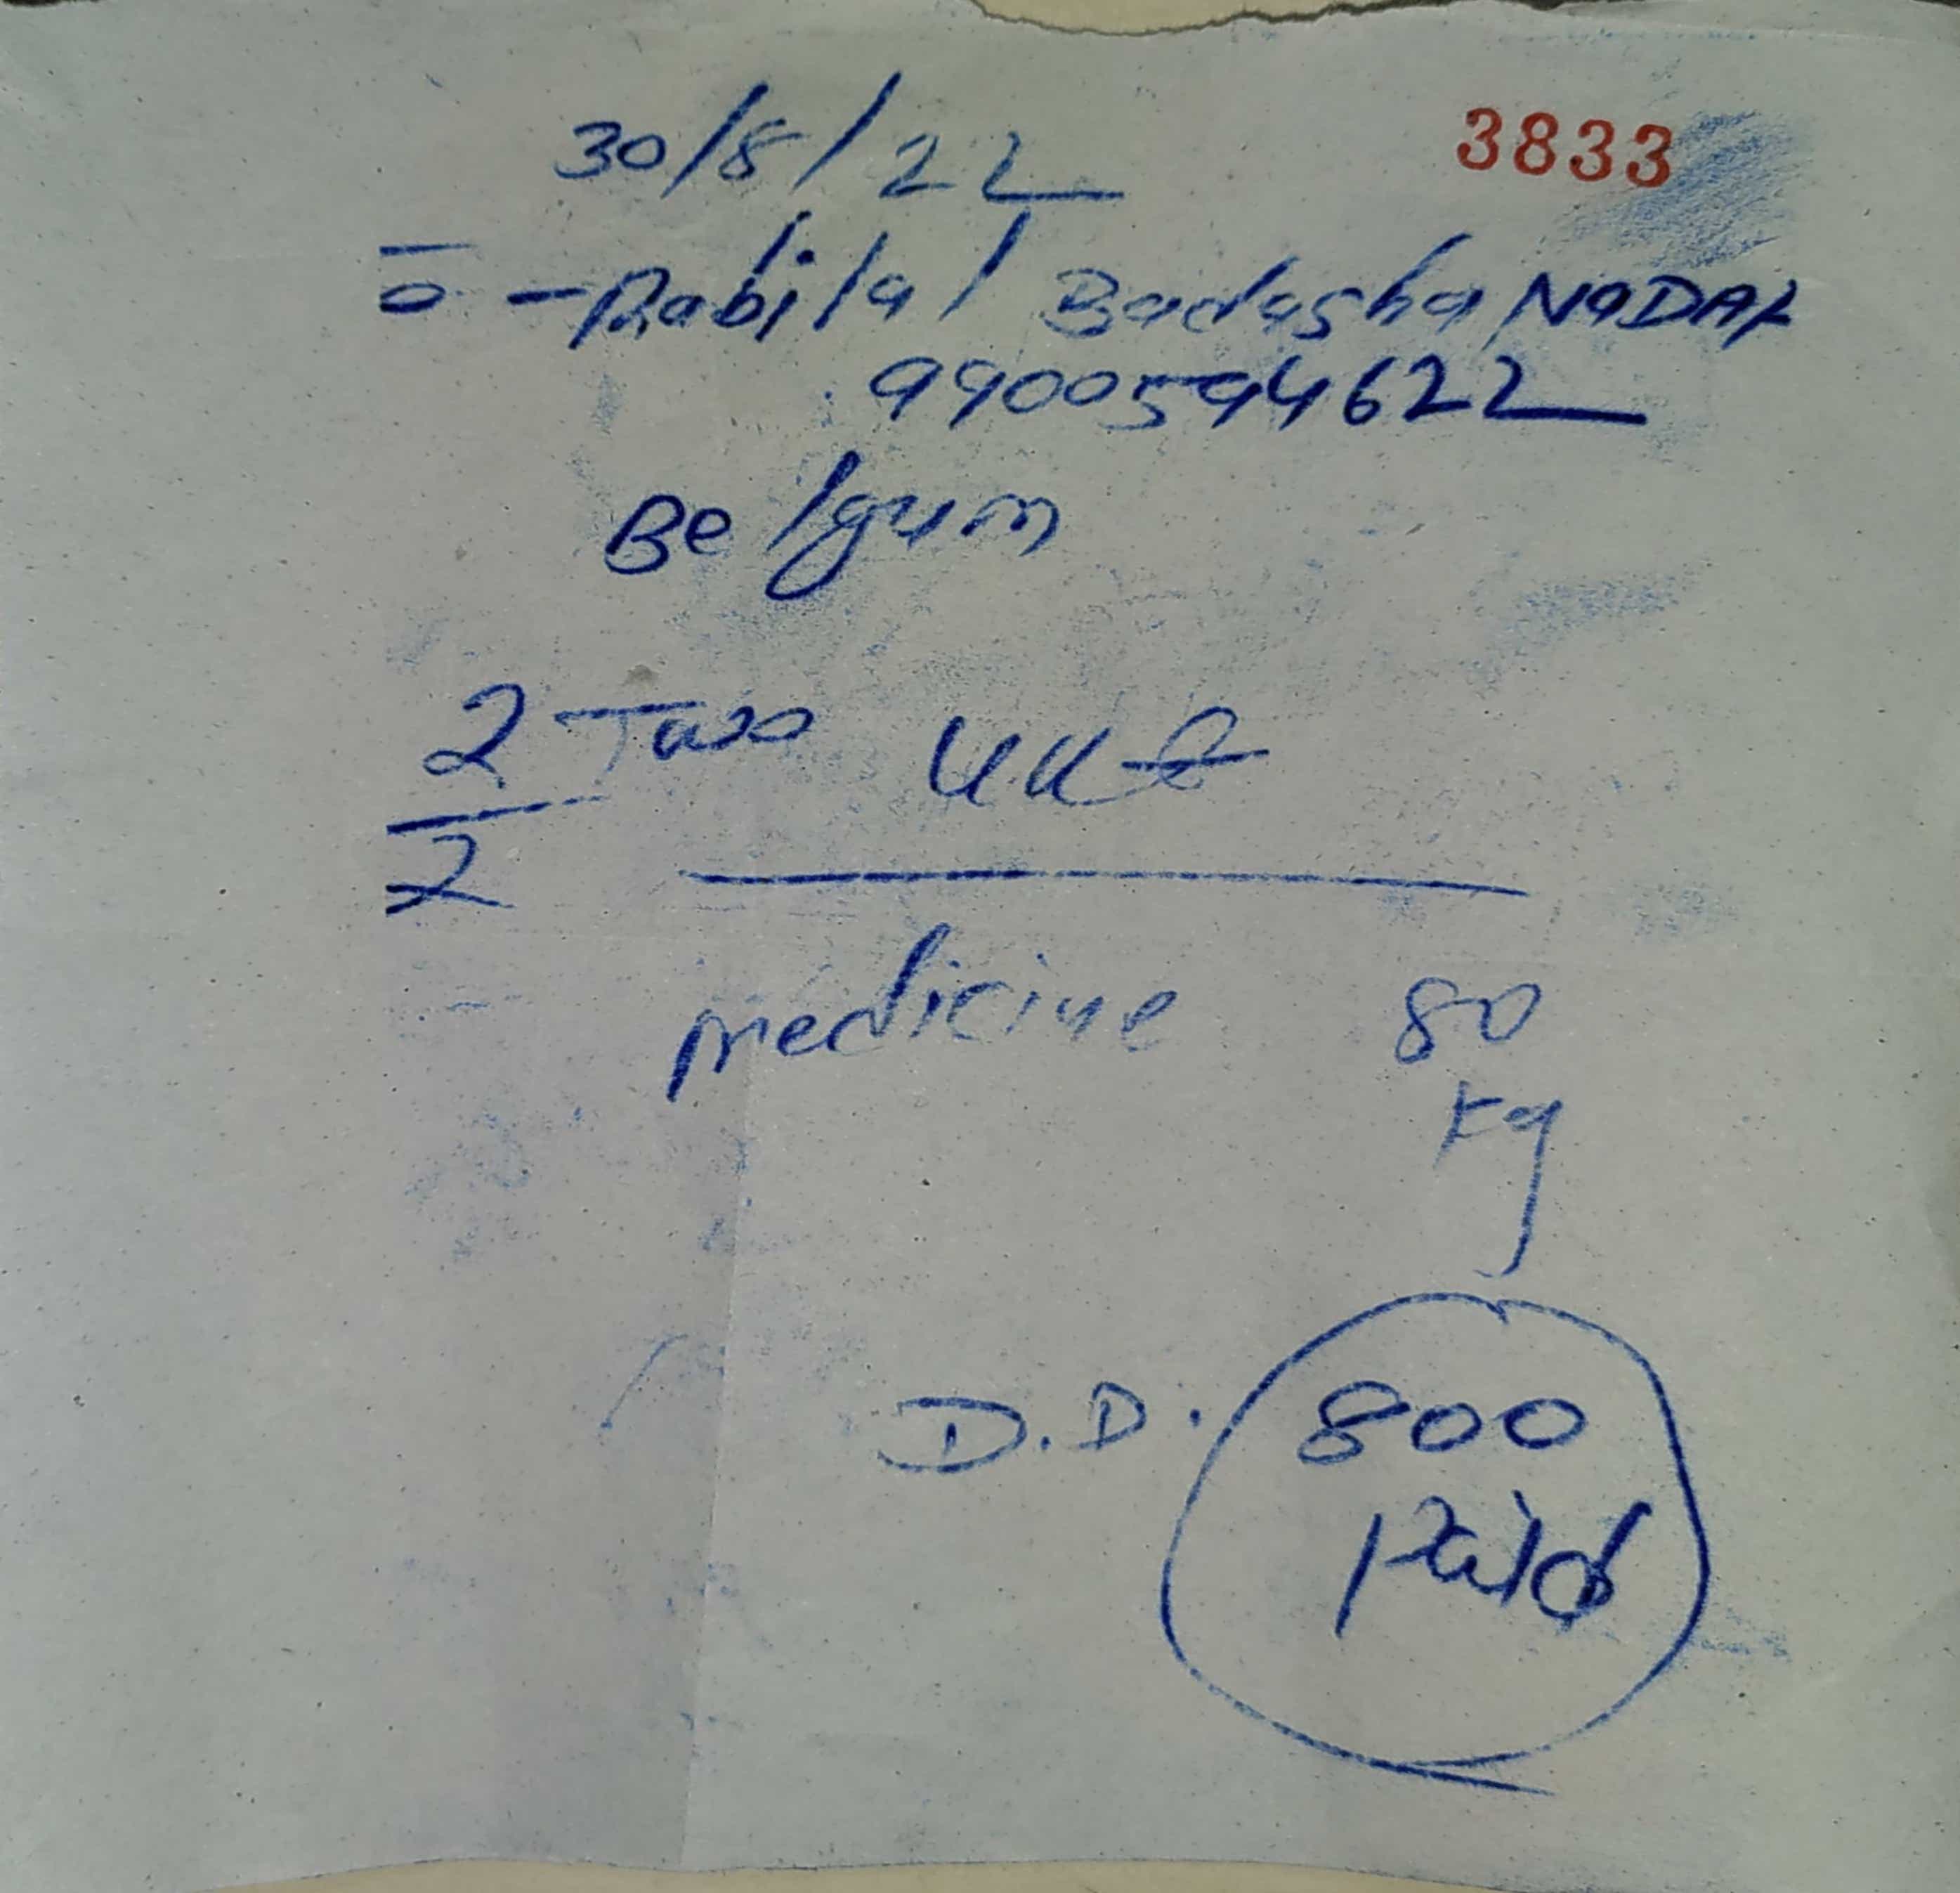 30/8/22 3833
To - Rabilal Badasha NaDAF
9900594622
Belgum
2 Two
2
medicine 80
Kg
D.D. 800
Paid